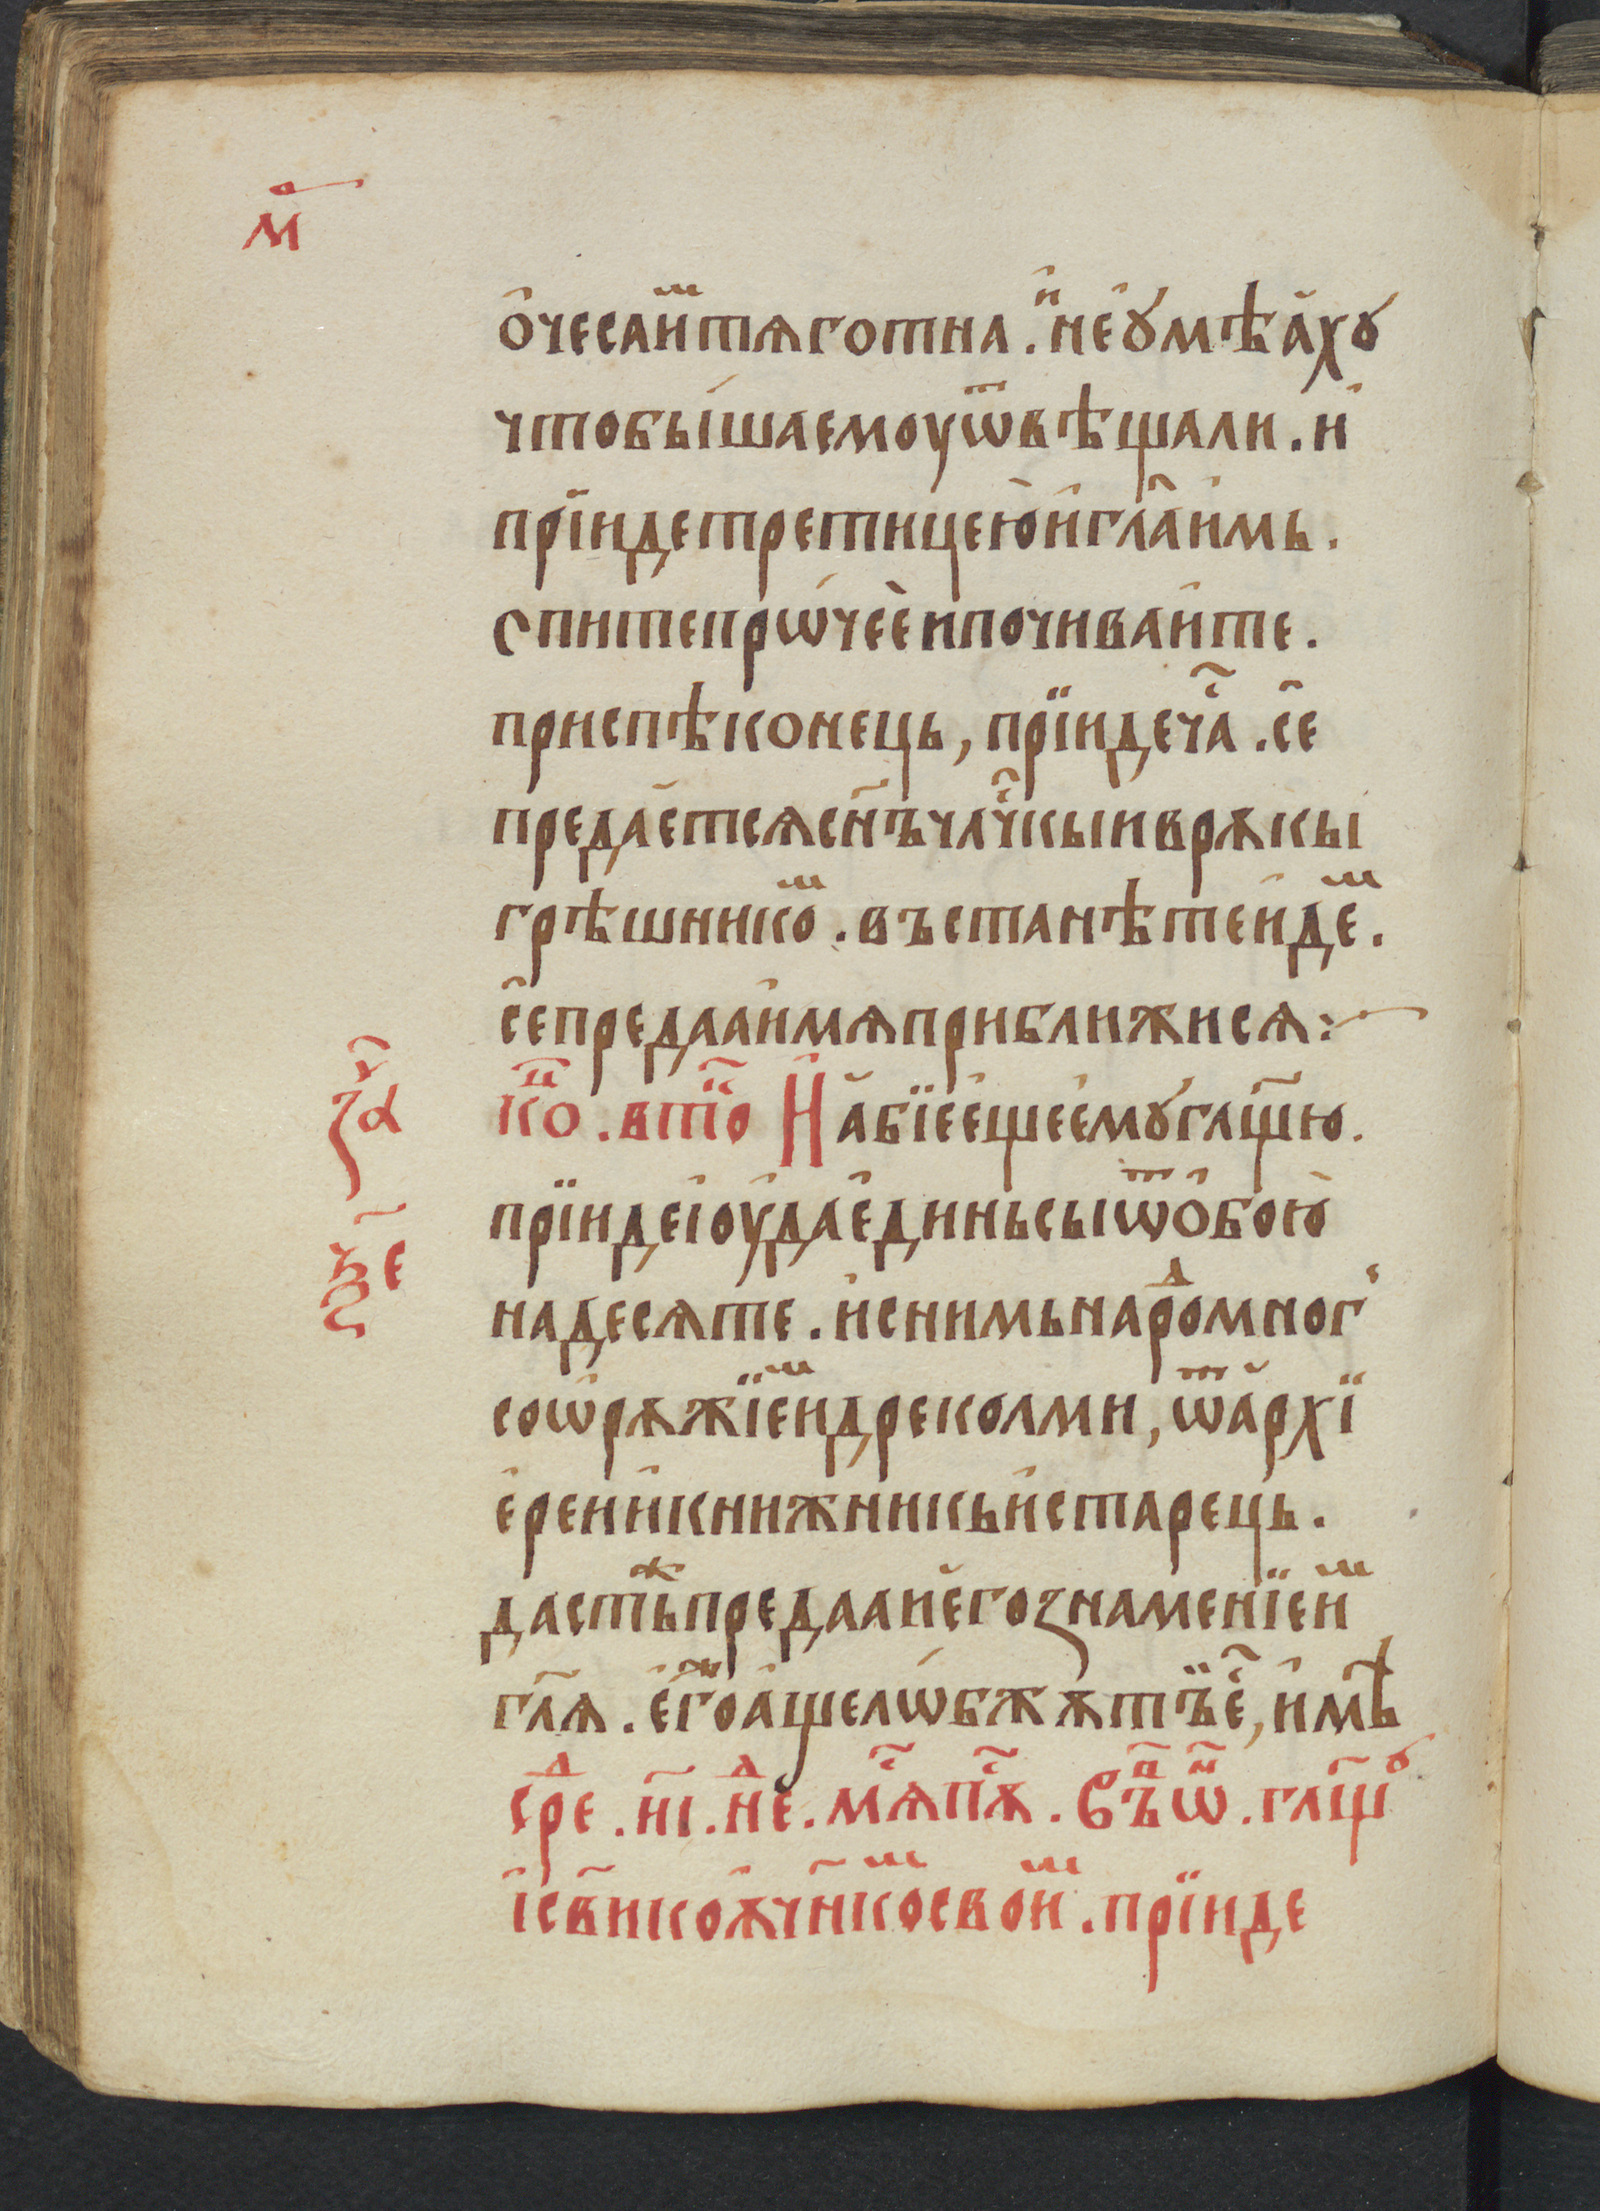 м҃
о҆чеса и҆мⷨ тѧготна . и҆ не ꙋ҆мѣа҆хꙋ
что бы́ша емоу ѿвѣщали . и҆
прїиде третицею̀ и҆ гл҃а и҆мь .
Спите прѡ́чеѐ и почива́ите .
приспѣ конець, прїиде ча҇ . се҆
предае҆тсѧ сн҃ъ чл҃ч҇кыи в рѫкы
грѣшникоⷨ . въстанѣте идеⷨ .
се҆ предааи҆ мѧ приближисѧ :
зⷱ҇а коⷩ҇ . втоⷬ҇ И҆ а҆бїе е҆ще е҆мꙋ гл҃щю .
прїиде і҆оу҆да е҆динь сы ѿ о҆бою̀
ѯ҃е надесѧте . и҆ с нимь нароⷣ мног҇
со ѡ҆рѫжїеⷨ и дреколми, ѿ а҆рхї
е҆реи и҆ книжникь и҆ старець .
дастьⷤ предааи е҆го знаменїе иⷨ
гл҃ѧ . е҆гоⷤ а҆ще лѡ́бжѫ тъи е҇, и҆мѣ
среⷣ . н҃і . неⷣ . мѧ҇ пѫ҇ . Въⷪ҇ ѿ . гл҃щꙋ
і҆с в҃ико ѫч҃нкоⷨ своиⷨ . прїиде